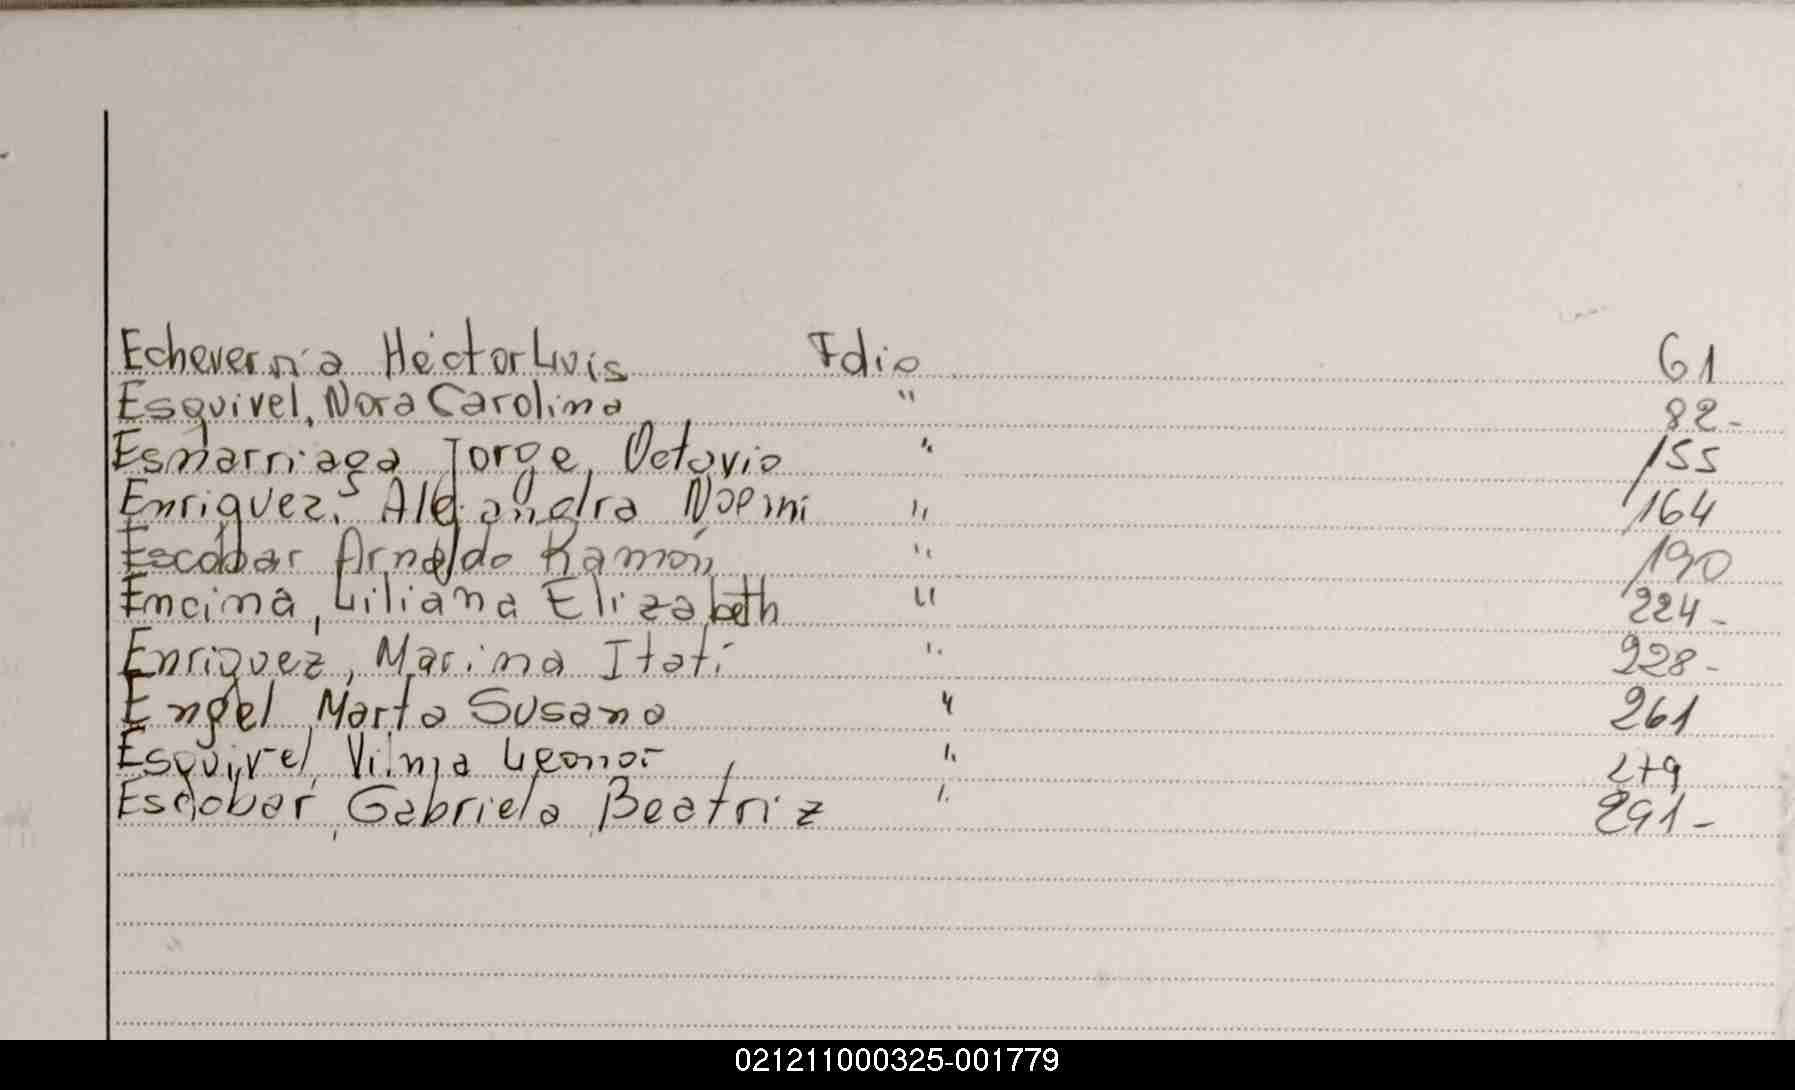 Echeverría Héctor Luis Folio 61
Esquivel, Nora Carolina " 82-
Esmarriaga Jorge, Octavio " 155
Enriquez, Alejandra Noemi " 164
Escobar Arnaldo Ramón " 190
Encina, Liliana Elizabeth " 224-
Enriquez, Marina Itatí " 228-
Engel Marta Susana " 261
Esquivel, Vilma Leonor " 279
Escobar, Gabriela Beatriz " 291-
021211000325-001779